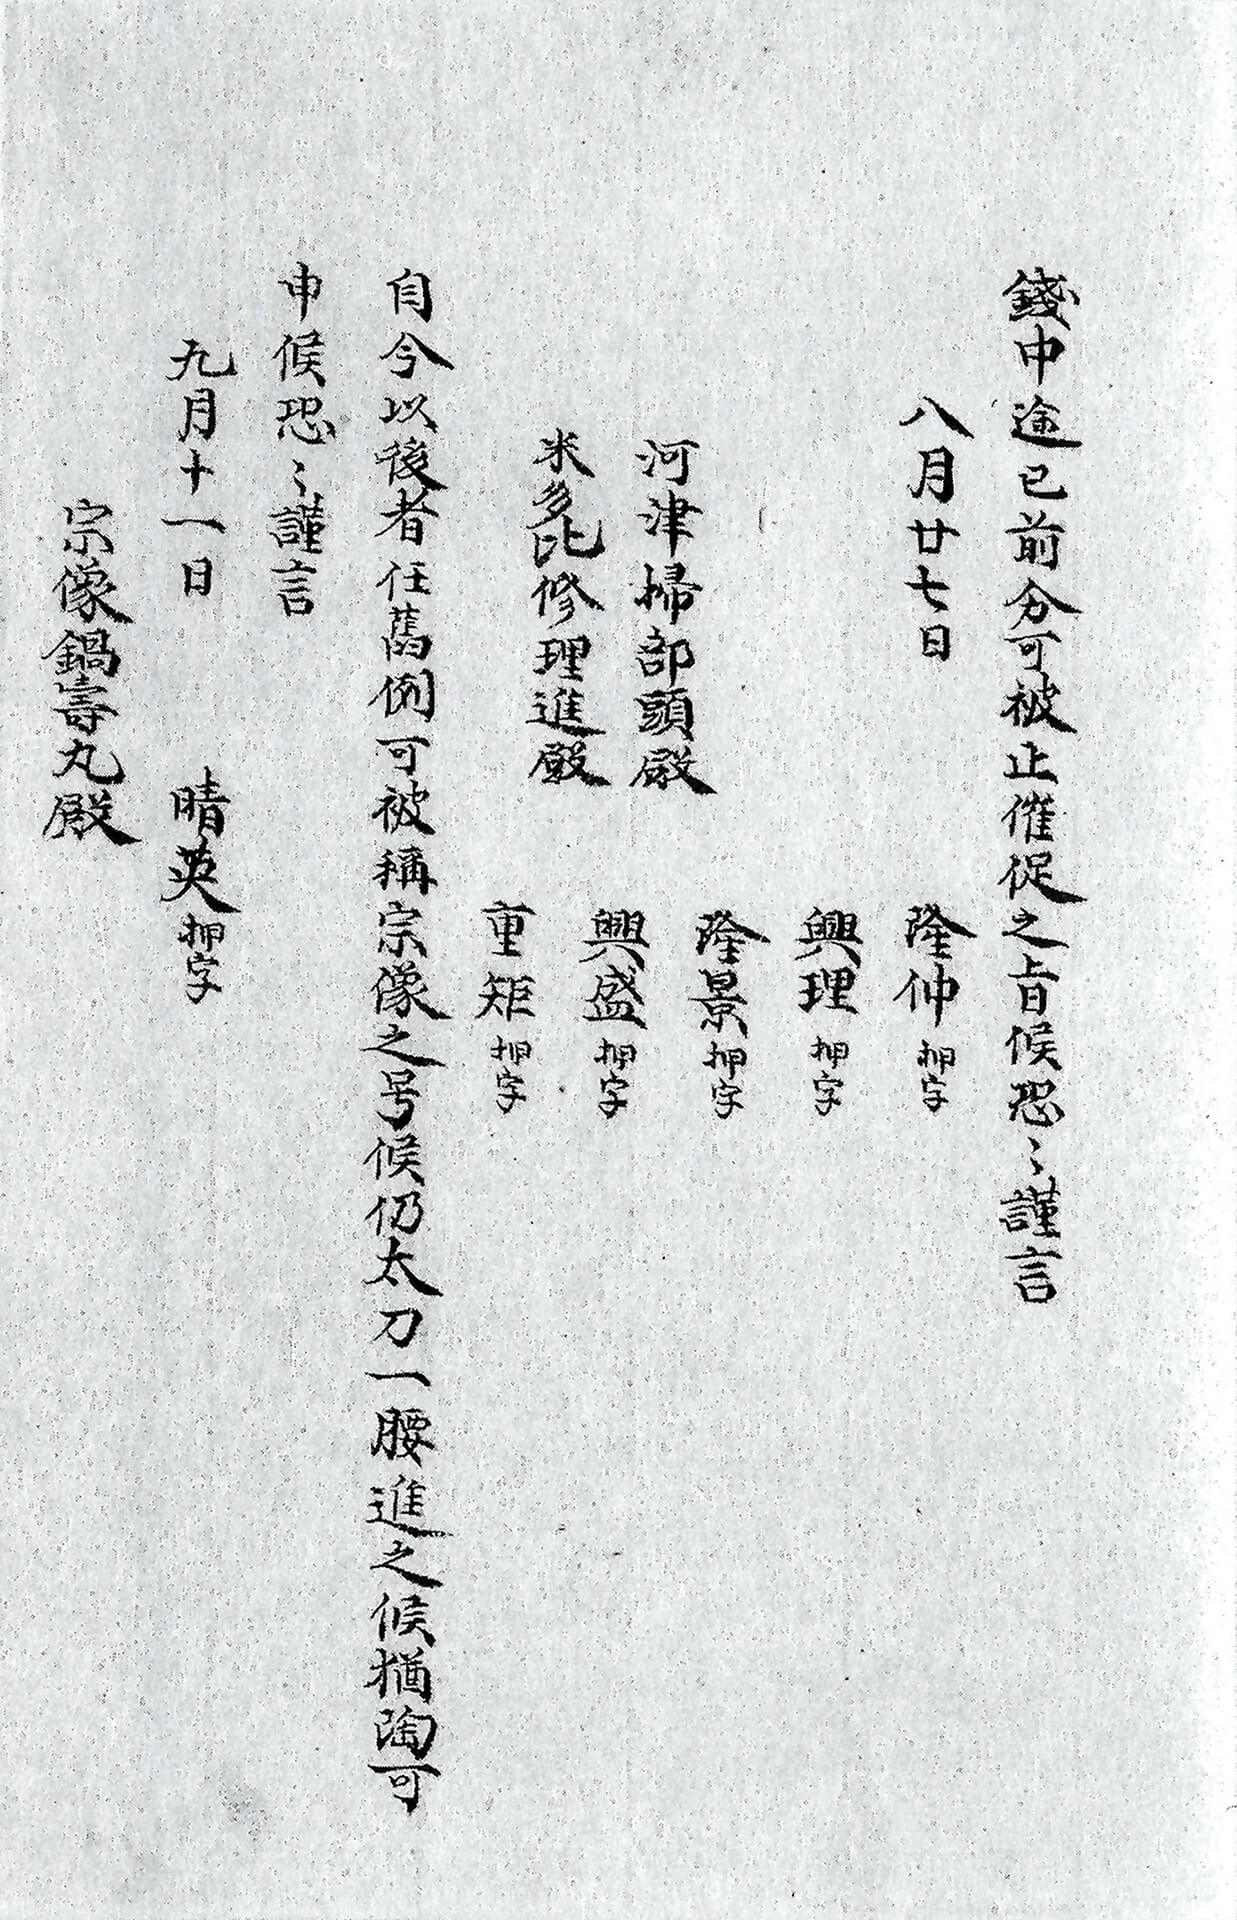 錢中途已前分可被止催促之旨候恐〻謹言
八月廿七日　隆仲押字
興理押字
隆景押字
河津掃部頭殿
興盛押字
米多比修理進殿
重矩押字
自今以後者任舊例可被稱宗像之号候仍太刀一腰進之候猶陶可
申候恐〻謹言
九月十一日　晴英押字
宗像鍋壽丸殿